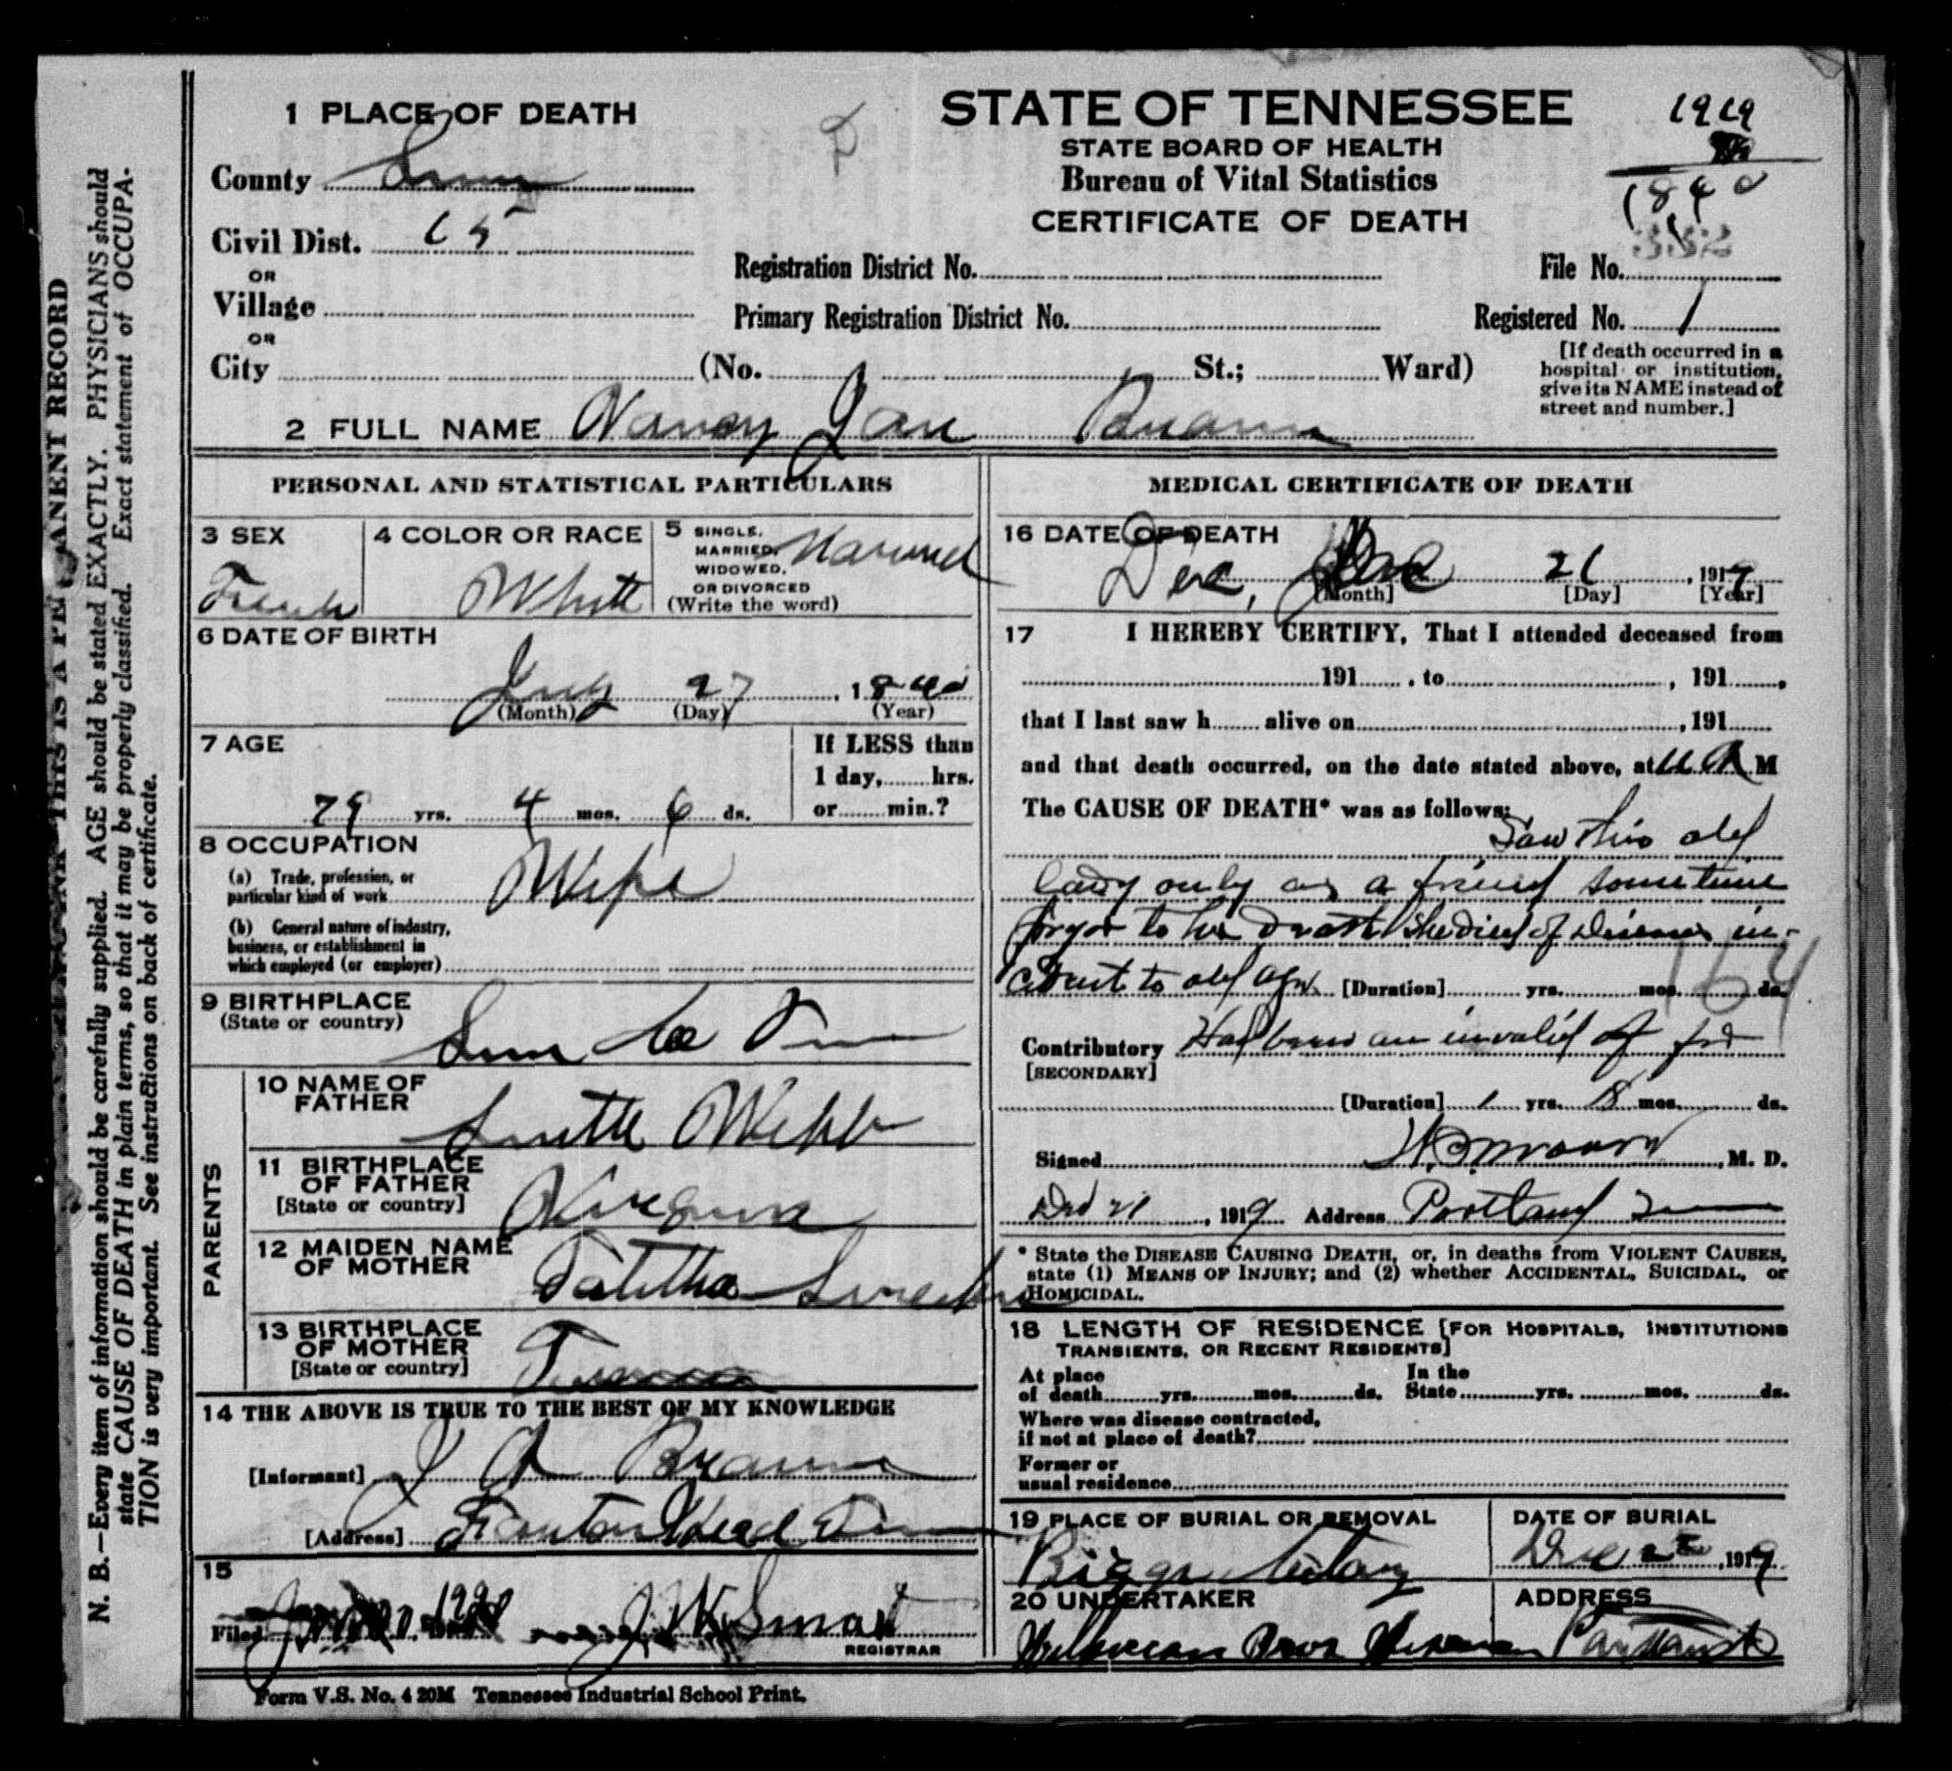 1 PLACE OF DEATH
County
Civil Dist. 15
OR
Village
OR
City (No. St.; Ward)
STATE OF TENNESSEE
STATE BOARD OF HEALTH
Bureau of Vital Statistics
CERTIFICATE OF DEATH
1919
1840
332
Registration District No.
File No.
Primary Registration District No.
Registered No. 1
[If death occurred in a
hospital or institution,
give its NAME instead of
street and number.]
2 FULL NAME Nancy Jane
PERSONAL AND STATISTICAL PARTICULARS
3 SEX
Female
4 COLOR OR RACE
White
5 SINGLE,
MARRIED,
WIDOWED,
OR DIVORCED
(Write the word)
Married
6 DATE OF BIRTH
July 27, 1840
(Month) (Day) (Year)
7 AGE
79 yrs. 4 mos. 6 ds.
If LESS than
1 day, hrs.
or min.?
8 OCCUPATION
(a) Trade, profession, or
particular kind of work Wife
(b) General nature of industry,
business, or establishment in
which employed (or employer)
9 BIRTHPLACE
(State or country)
Co
PARENTS
10 NAME OF
FATHER
Smith Webb
11 BIRTHPLACE
OF FATHER
[State or country]
Virginia
12 MAIDEN NAME
OF MOTHER
Tabitha
13 BIRTHPLACE
OF MOTHER
[State or country]
14 THE ABOVE IS TRUE TO THE BEST OF MY KNOWLEDGE
[Informant]
[Address]
15
Filed 1920 J. W. Smart
REGISTRAR
Form V.S. No. 4 20M Tennessee Industrial School Print.
MEDICAL CERTIFICATE OF DEATH
16 DATE OF DEATH
Dec, 21, 1919
[Month] [Day] [Year]
17 I HEREBY CERTIFY, That I attended deceased from
191 , to , 191 ,
that I last saw h alive on , 191
and that death occurred, on the date stated above, at M
The CAUSE OF DEATH* was as follows:
Saw this old
lady only as a friend sometime
to her Death She died of Diseases in-
cident to old age. [Duration] yrs. mos. ds.
164
Contributory Had been an invalid
[SECONDARY]
[Duration] 1 yrs. 8 mos. ds.
Signed , M. D.
Dec 21, 1919 Address Portland
* State the DISEASE CAUSING DEATH, or, in deaths from VIOLENT CAUSES,
state (1) MEANS OF INJURY; and (2) whether ACCIDENTAL, SUICIDAL, or
HOMICIDAL.
18 LENGTH OF RESIDENCE [FOR HOSPITALS, INSTITUTIONS
TRANSIENTS, OR RECENT RESIDENTS]
At place
of death yrs. mos. ds.
In the
State yrs. mos. ds.
Where was disease contracted,
if not at place of death?
Former or
usual residence
19 PLACE OF BURIAL OR REMOVAL
DATE OF BURIAL
Dec 22, 1919
20 UNDERTAKER
ADDRESS
Bros
N. B.—Every item of information should be carefully supplied. AGE should be stated EXACTLY. PHYSICIANS should
state CAUSE OF DEATH in plain terms, so that it may be properly classified. Exact statement of OCCUPA-
TION is very important. See instructions on back of certificate.
THIS IS A PERMANENT RECORD